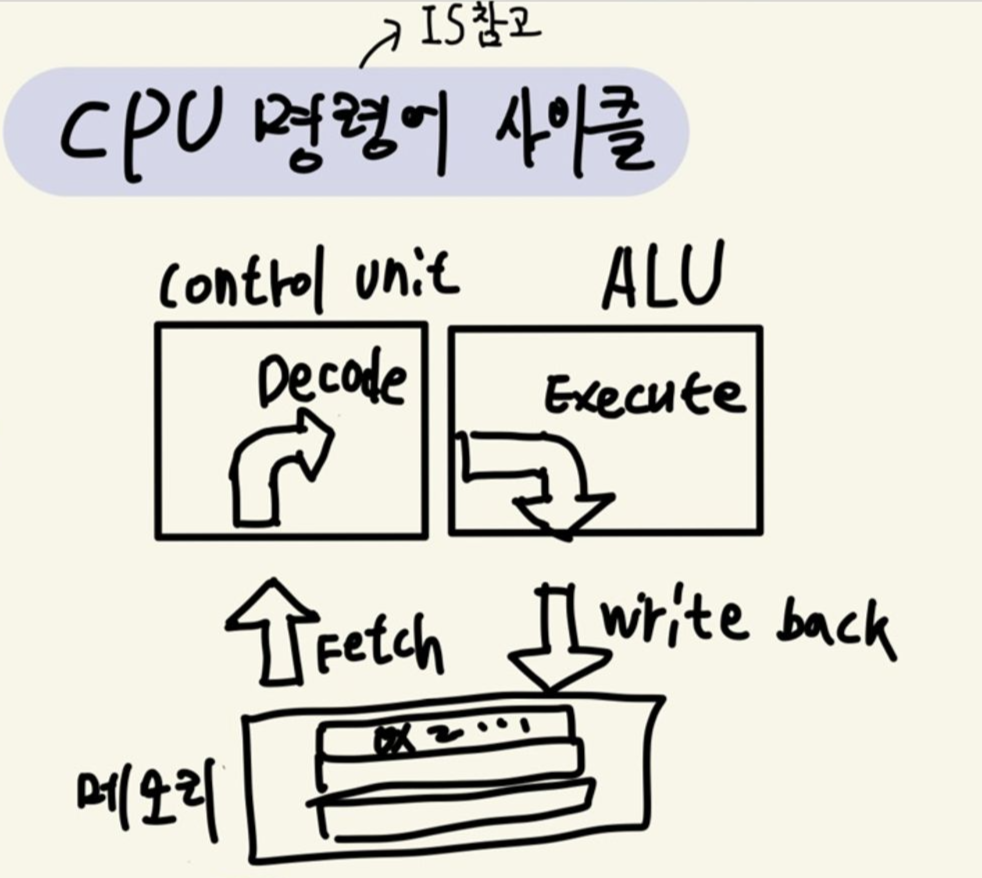 IS참고
CPU 명령어 사이클
Control unit
ALU
Decode
Execute
Fetch
write back
메모리